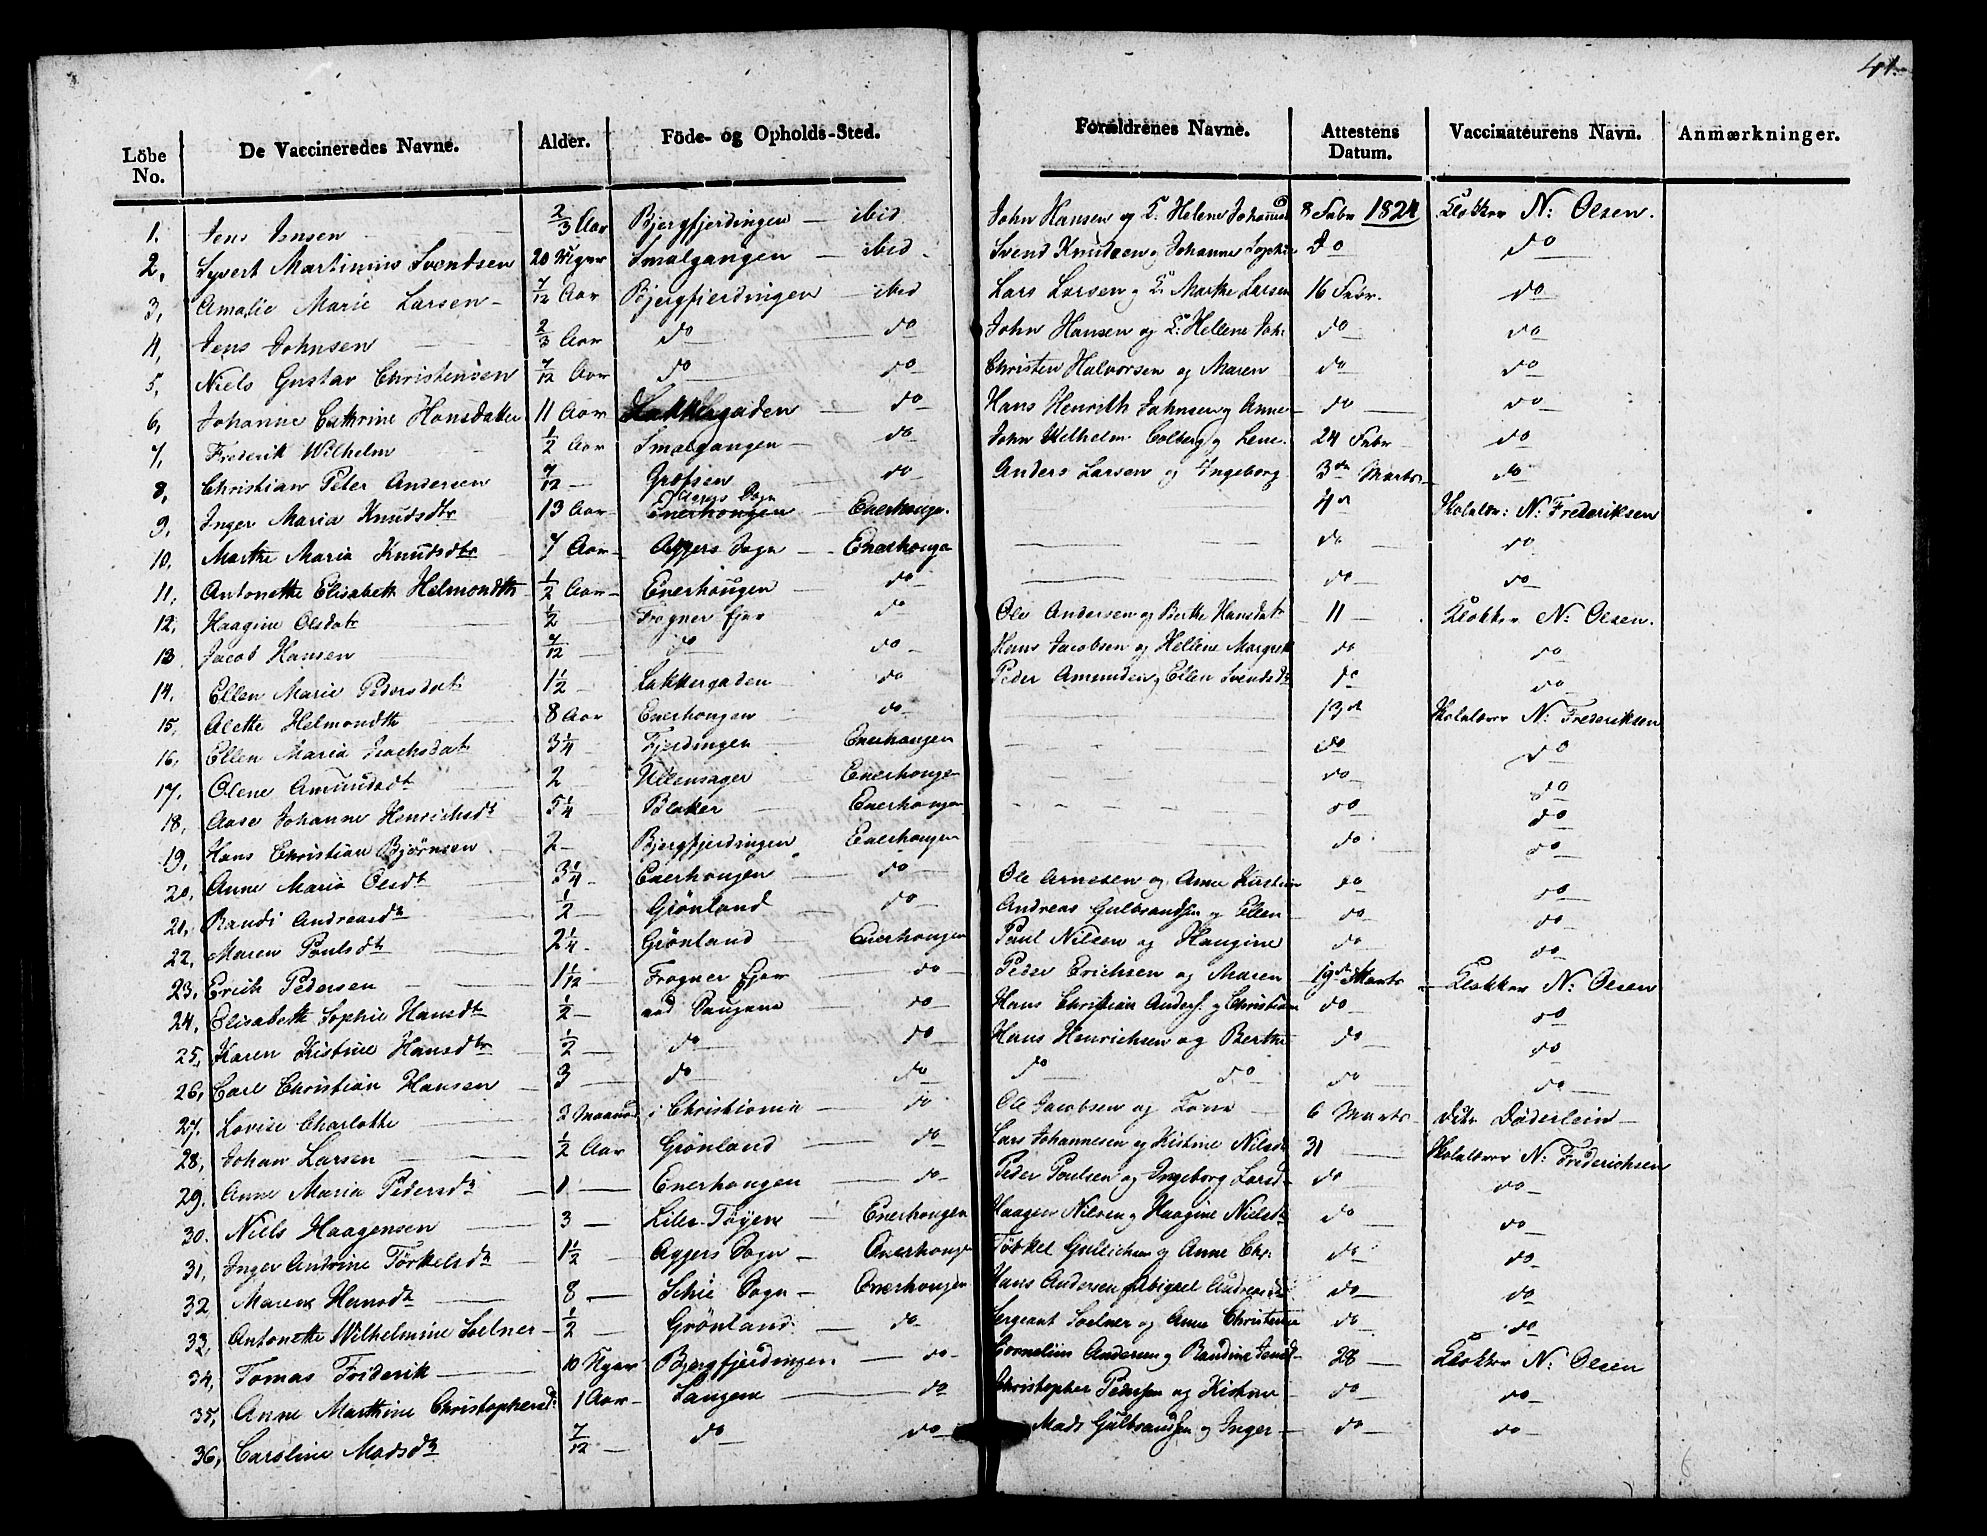 41.
Löbe No. De Vaccineredes Navne. Alder. Föde- og Opholds-Sted. Forældrenes Navne. Attestens Datum. Vaccinateurens Navn. Anmærkninger.
1. Jens Jensen 2/3 Aar Bjergfjerdingen ibid John Hansen og Helene 8 Febr 1824 Klokker N: Olsen.
2, Syvert Martinius Svendsen 20 Uger Smalgangen ibid Svend Knudsen og Johanne Sophie do do
3, Amalie Marie Larsen 7/12 Aar Bjergfjerdingen ibid Lars Larsen og Marthe Larsen 16 Febr. do
4, Jens Johnsen 2/3 Aar do do John Hansen og Hellene Joh: do do
5, Niels Gustav Christensen 7/12 Aar do do Christen Halvorsen og Maren do do
6, Johanne Cathrine Hansdatter 11 Aar Lakkegaden do Hans Henrich Jahnsen og Anne do do
7, Frederik Wilhelm 1/2 Aar Smalgangen do John Wilhelm Colberg og Lene 24 Febr do
8, Christian Peter Andersen 7/12 Grofsen do Anders Larsen og Ingeborg 3de Marts do
9, Inger Maria Knudsdtr 13 Aar Aggers Sogn Enerhougen Enerhouge. 4de Skolelær: N: Frederiksen
10, Marthe Maria Knudsdtr 7 Aar Aggers Sogn Enerhouge do do
11, Antonette Elisabeth Helmondth 1/2 Aar Enerhougen do do do
12, Haagine Olsdatr 1/2 Frogner Ejer do Ole Andersen og Berthe Hansdatr 11 Klokker N: Olsen.
13 Jacob Hansen 7/12 do do Hans Jacobsen og Hellene Margreth do do
14, Ellen Marie Pedersdatr 1 1/2 Lakkergaden do Peder Amunden, Ellen Svendsdtr do do
15, Alette Helmondth 8 Aar Enerhougen do 13de Skolelærer N: Frederiksen
16, Ellen Maria Isachsdatr 3 1/4 Fjerdingen Enerhougen do do
17, Olene Amundsdtr 2 Ullensager Enerhouge do do
18, Aase Johanne Henrichsdtr 5 1/4 Blaker Enerhouge do do
19, Hans Christian Bjørnsen 2 Bjergfjerdingen Enerhougen do do
20, Anne Maria Olsdtr 3 1/4 Enerhougen do Ole Arnesen og Anne Kirstine do do
21, Randi Andreasdtr 1/2 Grönland do Andreas Gulbrandsen og Ellen do do
22, Maren Poulsdtr 2 1/4 Grönland Enerhougen Paul Nilsen og Haugine do do
23, Erich Pedersen 1 1/12 Frogner Ejer do Peder Erichsen og Maren 19de Marts Klokker N: Olsen
24, Elisabeth Sophie Hansdtr 1/2 ved Saugene do Hans Christian Anders. og Christian do do
25, Karen Kistine Hansdtr 1/2 do do Hans Henrichsen og Berthe do do
26, Carl Christian Hansen 3 do do do do do do
27. Lovise Charlotte 2 Maaned i Christiania do Ole Jacobsen og Lene 6 Marts Dr Döderlein
28, Johan Larsen 1/2 Aar Grönland do Lars Johannesen og Kistine Nilsdtr 31 Skolelærer N: Frederichsen
29. Anne Maria Pedersdtr 1 Enerhougen do Peder Poulsen og Ingeborg Larsd do do
30. Niels Haagensen 3 Lille-Töyen Enerhougen Haagen Nilsen og Haagine Nielsdtr do do
31, Inger Antrine Törkelsdtr 1 1/2 Aggers Sogn Enerhouge Törkel Gullichsen og Anne Chr: do do
32 Maren Hansdtr 8 Schie Sogn Enerhougen Hans Andersen Abigael Andreasdtr do do
33, Antonette Wilhelmine Soelner 1/2 Grönland do Sergeant Soelner og Anne Christense do do
34, Tomas Friderik 10 Uger Bjergfjerdingen do Cornelius Andersen og Randine Jensd 28 Klokker N: Olsen
35, Anne Marthine Christophersdr 1 Aar Saugene do Christopher Pedersen og Kistine do do
36, Caroline Madsdtr 7/12 do do Mads Gulbrandsen og Inger do do